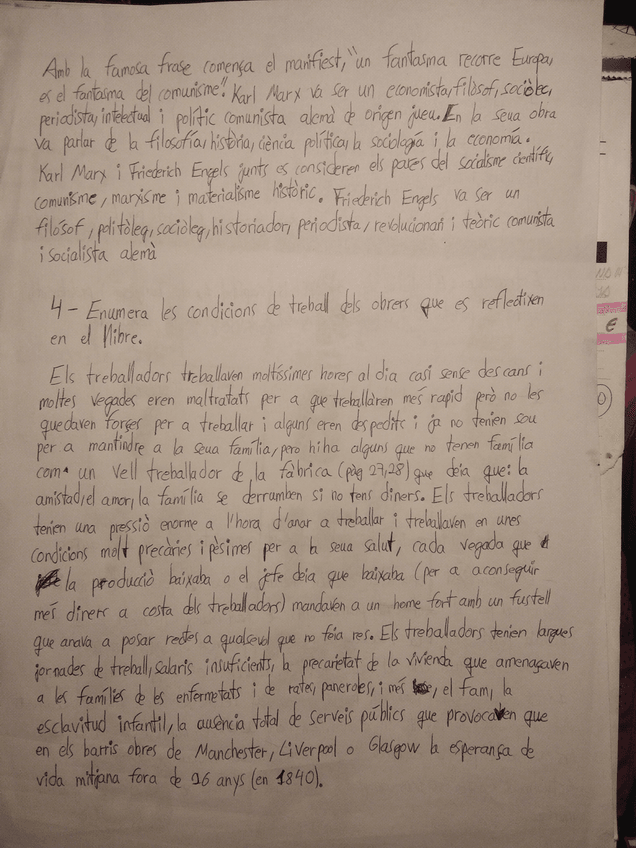 Amb la famosa frase comença el manifiest, "un fantasma recorre Europa,
es el fantasma del comunisme". Karl Marx va ser un economista, filòsof, sociòleg,
periodista, intelectual i polític comunista alemà de origen jueu. En la seua obra
va parlar de la filosofía, història, ciència política, la sociología i la economía.
Karl Marx i Friederich Engels junts es consideren els pares del socialisme científic,
comunisme, marxisme i materialisme històric. Friederich Engels va ser un
filòsof, politòleg, sociòleg, historiador, periodista, revolucionari i teòric comunista
i socialista alemà
4- Enumera les condicions de treball dels obrers que es reflectixen
en el llibre.
Els treballadors treballaven moltíssimes hores al dia casi sense descans i
moltes vegades eren maltratats per a que treballàren més rapid però no les
quedaven forçes per a treballar i alguns eren despedits i ja no tenien sou
per a mantindre a la seua família, pero hiha alguns que no tenen família
com un vell treballador de la fàbrica (pàg 27,28) que deia que: la
amistad, el amor, la família se derramben si no tens diners. Els treballadors
tenien una pressiò enorme a l'hora d'anar a treballar i treballaven en unes
condicions molt precàries i pèsimes per a la seua salut, cada vegada que
la producciò baixaba o el jefe deia que baixaba (per a aconseguir
més diners a costa dels treballadors) mandaven a un home fort amb un fustell
que anava a posar rectes a qualsevol que no feia res. Els treballadors tenien largues
jornades de treball, salaris insuficients, la precarietat de la vivienda que amenaçaven
a les famílies de les enfermetats i de rates, paneroles, i més, el fam, la
esclavitud infantil, la ausència total de serveis públics que provocaven que
en els barris obres de Manchester, Liverpool o Glasgow la esperança de
vida mitjana fora de 26 anys (en 1840).
€